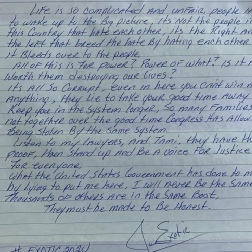 Life is so complicated and unfair, people ne
to wake up to the Big picture, its Not the people in
this Country that hate each other, its the Right and
the left that breed the hate By hating each other
it Bleeds over to the people.
All of this is for Power? Power of what? Is it
Worth them destroying our lives?
Its All So Corrupt, Even in here you cant win
Anything, they try to take your good time Away
Keep you in the System longer, So many Families
not together over the good time Congress has Allow
Being Stolen By the Same System.
Listen to my lawyers, and Tami, they have the
proof, then Stand up and Be a Voice for Justice
for everyone.
What the United States Government has done to m
by lying to put me here, I will never Be the Same
Thousands of others Are in the Same Boat,
They must Be made to Be Honest.
Exotic